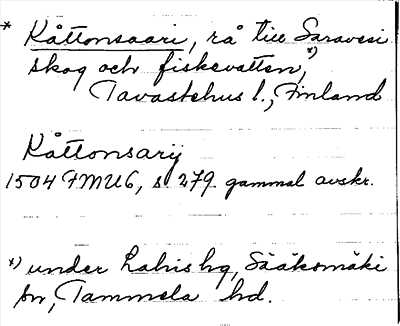 * Kåttonsaari, rå till Saravesi
skog och fiskevatten,*)
Tavastehus l., Finland
Kåttonsarij
1504 FMU6, s. 279. gammal avskr.
*) under Lahis hg, Sääksmäki
sn, Tammela hd.